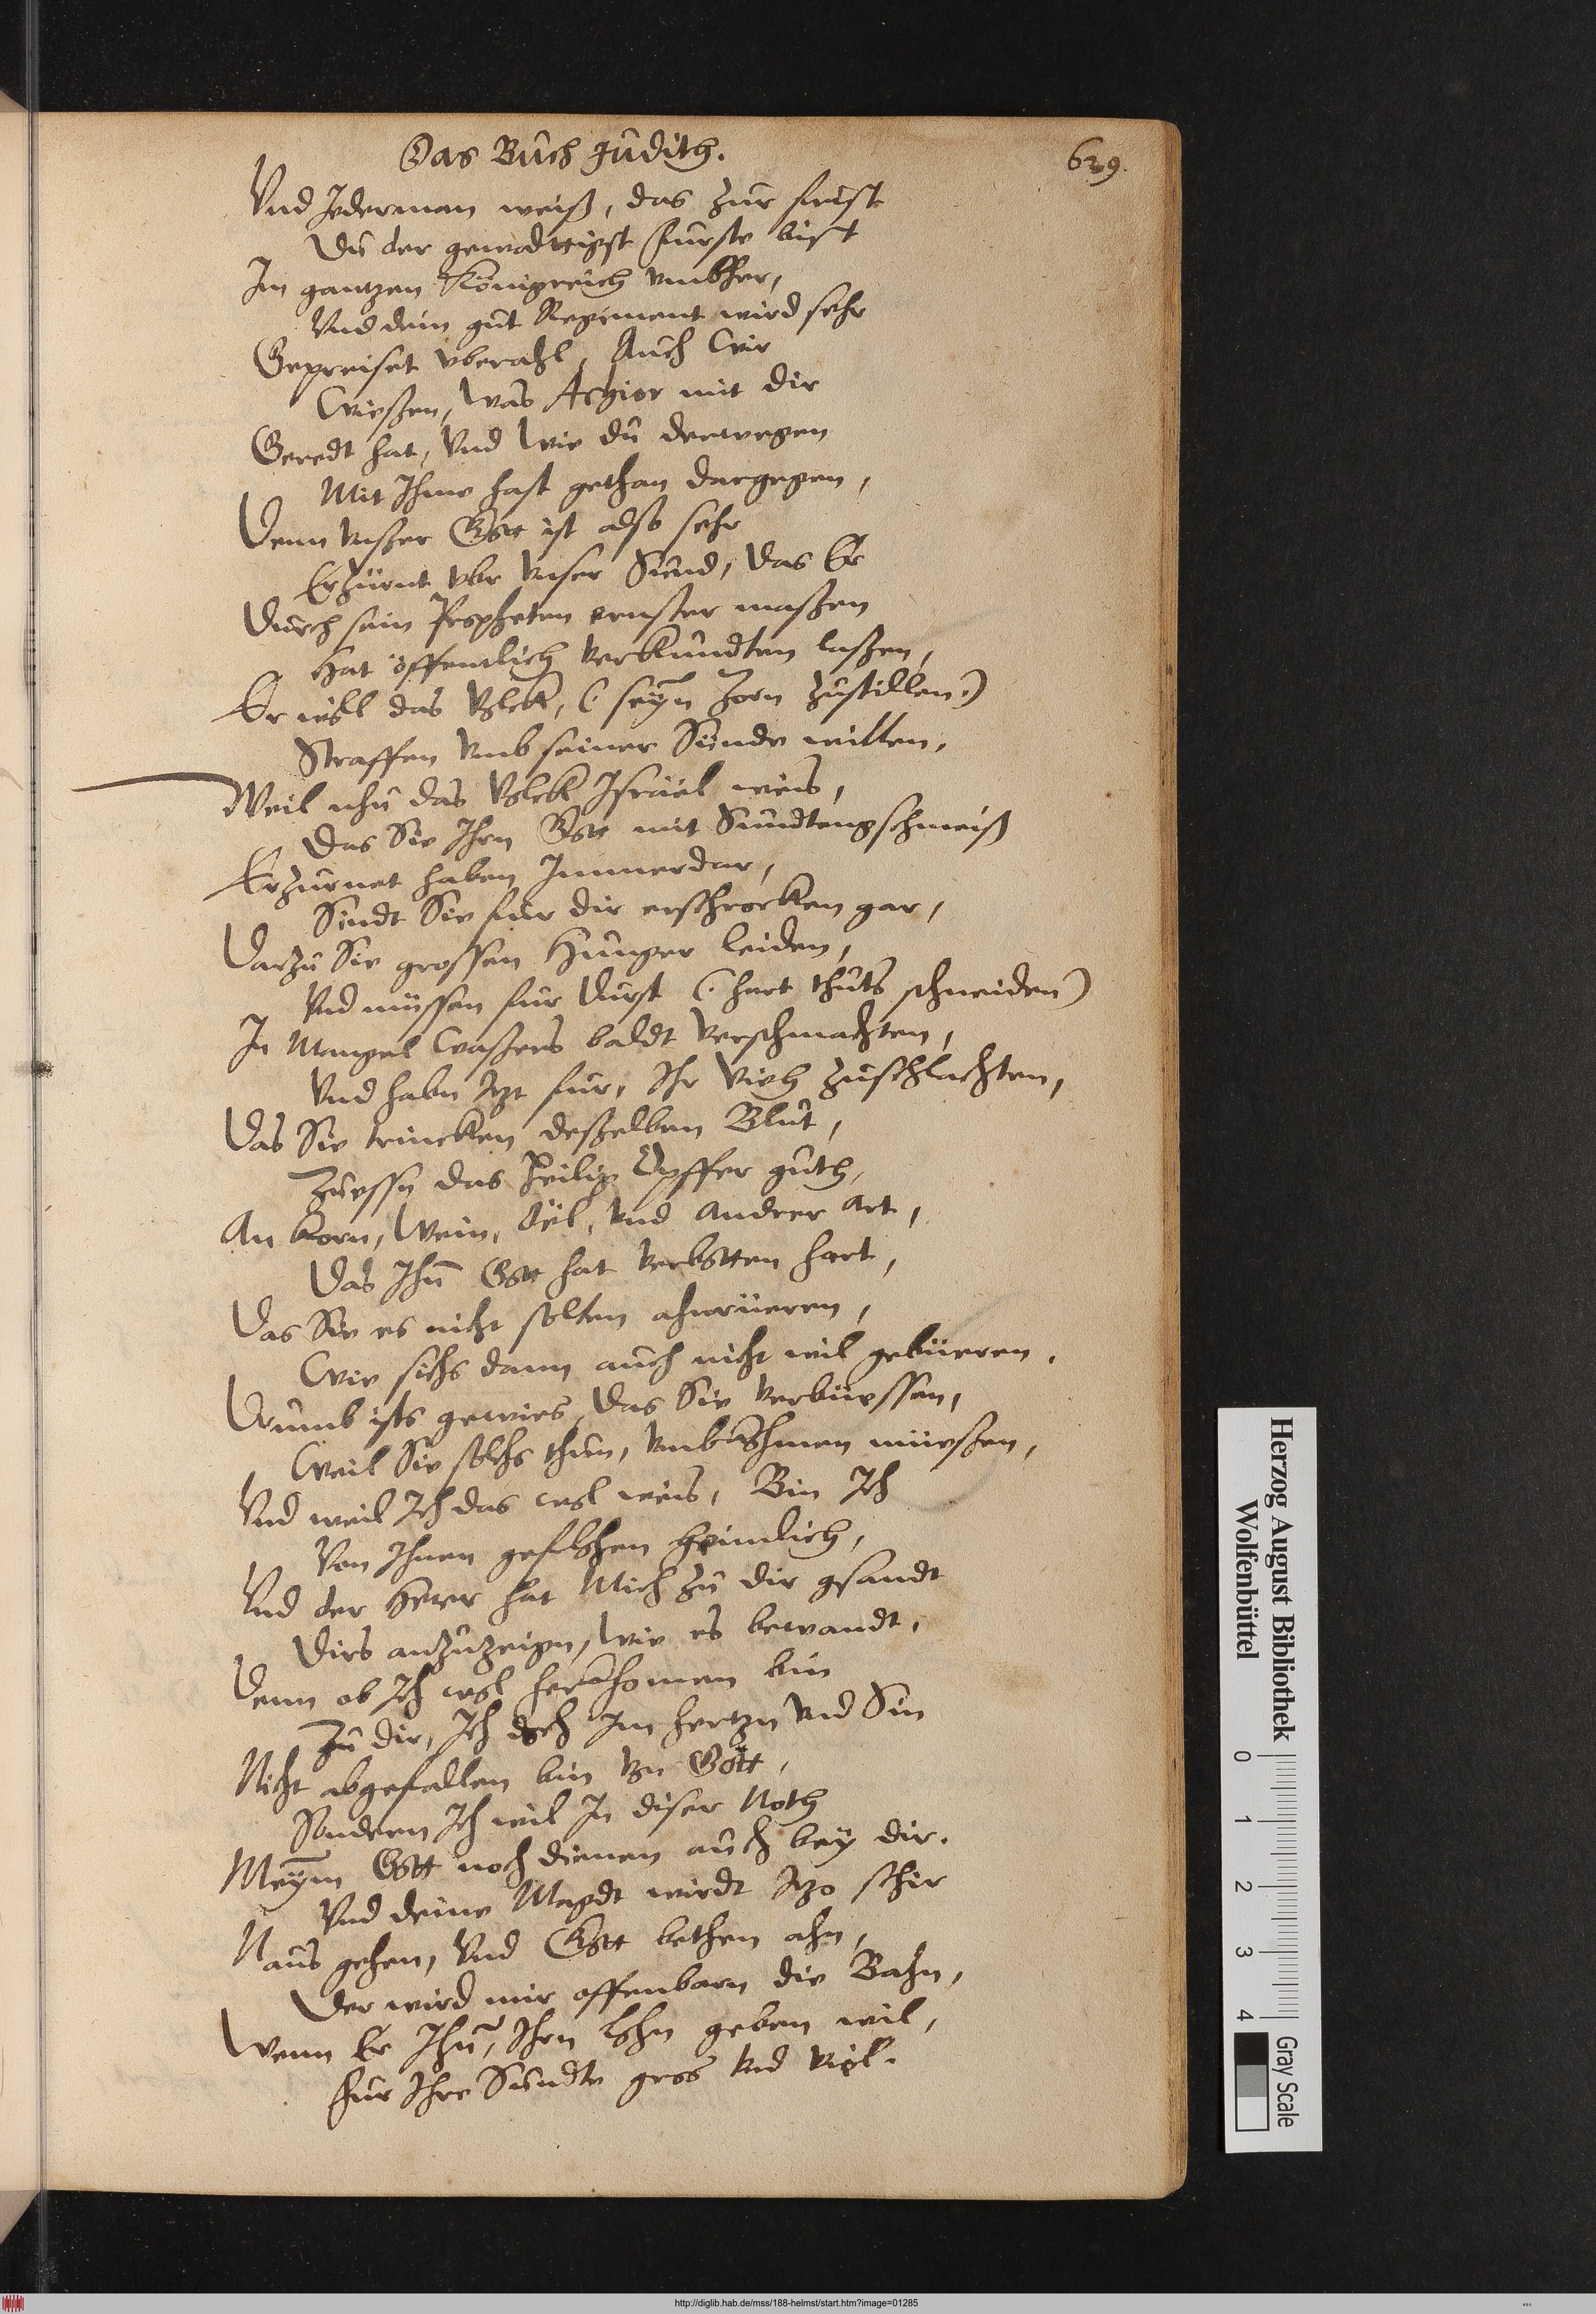 Das Buch Judith.
629.
Vnd Jederman weiß, das zur frist
Du der gewadttigst furste bist
Im gantzen Königreich vmbher,
Vnd dein gut Regiment wird sehr
Gepreiset vberahl, Auch Wir
Wießen, was Achior mit dir
Geredt hat, Vnd wie du derwegen
Mit Ihme hast gethan dargegen,
Denn vnßer Gott ist also sehr
Erzürnt vbr vnser Sünd, das Er
Durch sein Propheten ernster maßen
Hat öffentlich verkundten laßen,
Er woll das Volck, (seyn Zorn zustillen)
Straffen vmb seiner Sünde willen,
Weil nhu das Volck Israël weis,
Das Sie Ihrn Gott mit Sundtengschmeiß
Erzurnet haben Immerdar,
Sindt Sie fur dir erschrocken gar,
Darzu Sie grossen Hunger leiden,
Vnd müssen fur Durst (hart thuts schneiden)
In Mangel Waßers baldt verschmachten,
Vnd habn Itzt fur, Ihr Vieh zuschlachten,
Das Sie trincken deßelben Blut,
Zuessn das Heilig Opffer guth,
An Korn, Wein, Oël, vnd andrer art,
Das Ihn Gott hat verbotten hart,
Das Sie es nicht solten ahnrüeren,
Wie sichs dann auch nicht wil gebüeren.
Drumb ists gewies, das Sie verbüessen,
Weil Sie solchs thun, vmbkhomen müeßen,
Vnd weil Ich das wol weis, Bin Ich
Von Ihnen geflohen heimlich,
Vnd der Herr hat Mich zu dir gsandt
Dirs anzuzeign, wie es bewandt,
Denn ob Ich wol herkhomen bin
Zu dir, Ich doch Im hertzn vnd Sin
Nicht abgefallen bin von Gott,
Sondern Ich wil In diser Noth
Meym Gott noch dienen auch bey dir.
Vnd deine Magdt wirdt Itzo schir
Naus gehen, vnd Gott bethen ahn,
Der wird mir offenbarn die Bahn,
Wenn Er Ihn, Ihrn lohn geben wil,
fur Ihre Sundte gros vnd viel.
Herzog August Bibliothek
Wolfenbüttel
0 1 2 3 4
Gray Scale
http://diglib.hab.de/mss/188-helmst/start.htm?image=01285